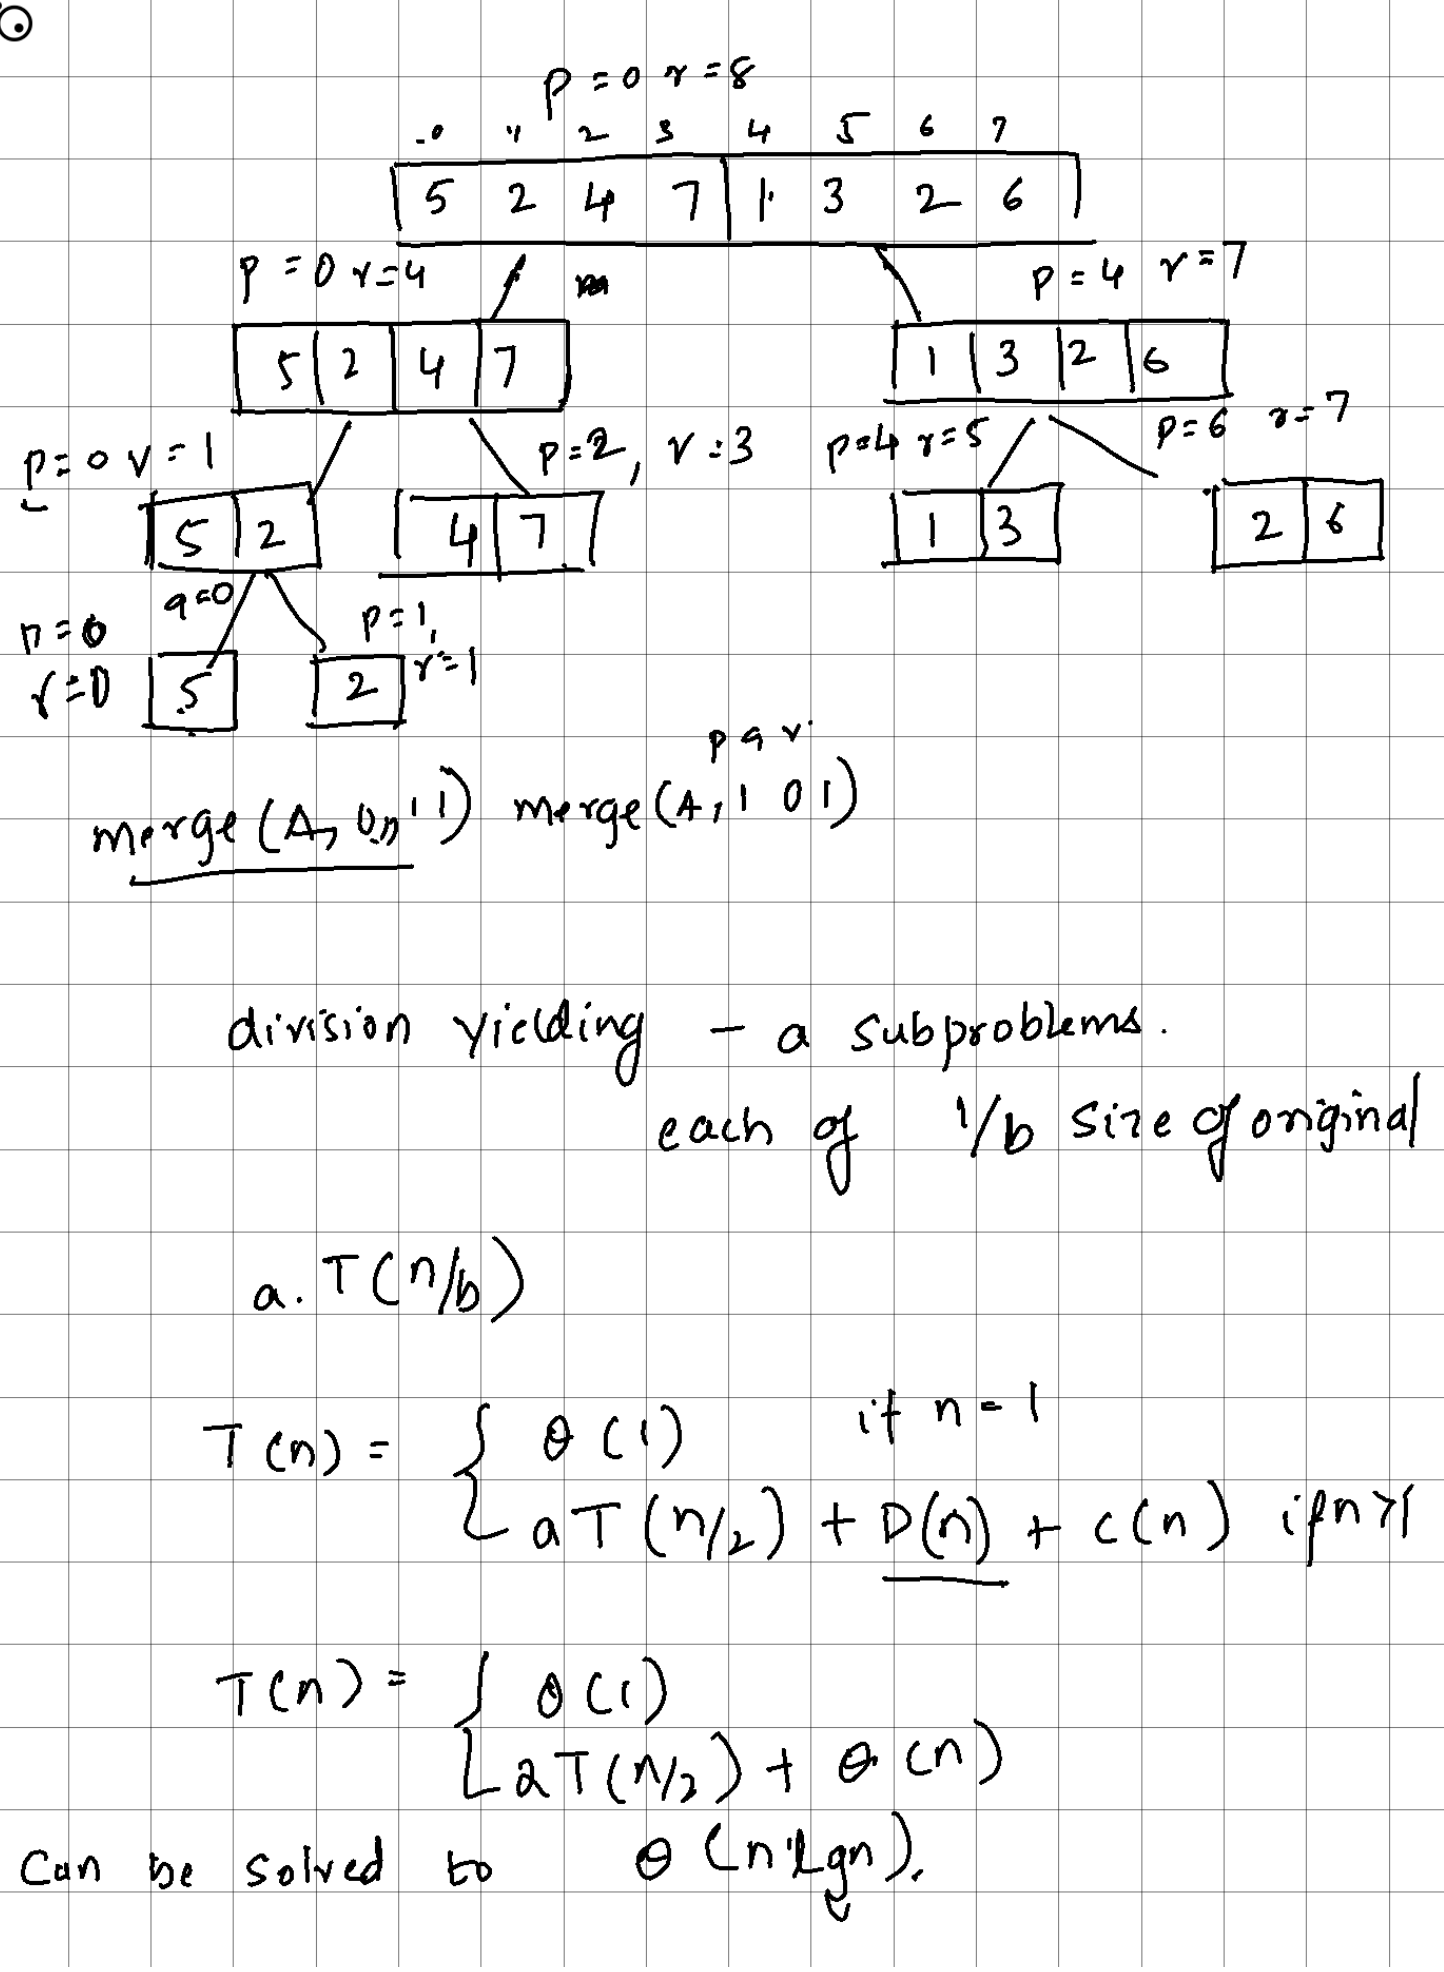 p = 0 r = 8
0 1 2 3 4 5 6 7
5 2 4 7 1 3 2 6
p = 0 r = 4
p = 4 r = 7
5 2 4 7
1 3 2 6
p = 0 r = 1
p = 2, r = 3
p = 4 r = 5
p = 6 r = 7
5 2
4 7
1 3
2 6
q = 0
p = 1,
r = 1
= 0
r = 0
5
2
p q r
merge (A, 0, 1) merge (A, 1 0 1)
division yielding - a subproblems.
each of 1/b size of original
a. T(n/b)
T(n) = { θ(1) if n = 1
aT(n/2) + D(n) + c(n) if n > 1
T(n) = { θ(1)
2T(n/2) + θ(n)
Can be solved to θ(n lgn).